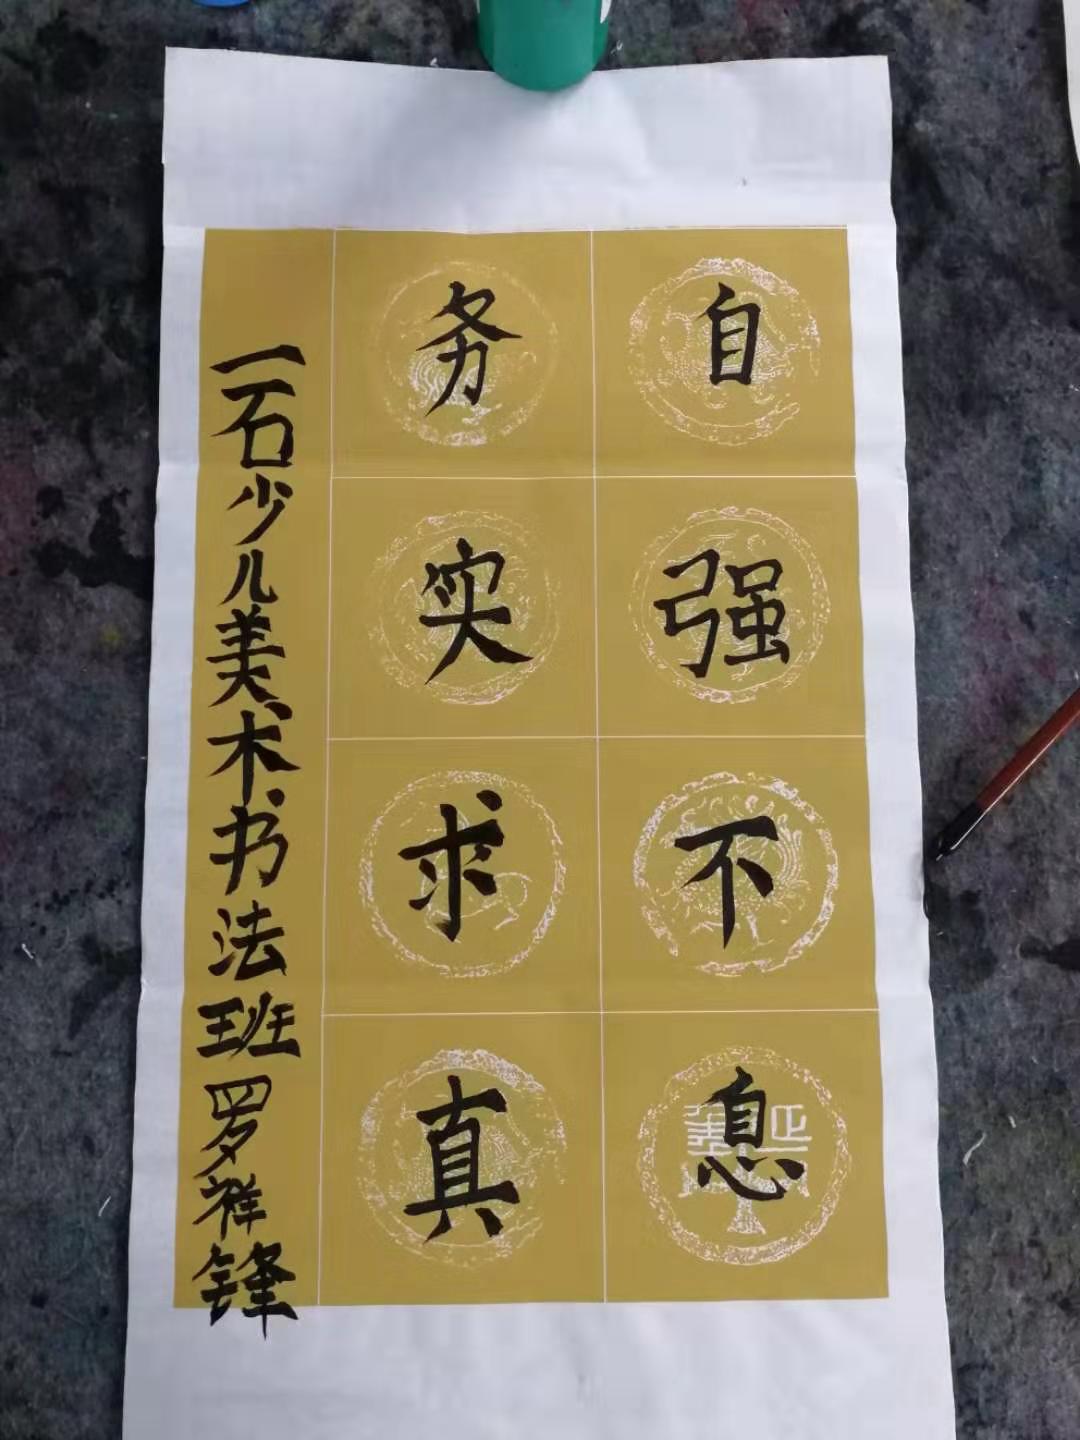 自强不息
务实求真
一石少儿美术书法班罗祥锋